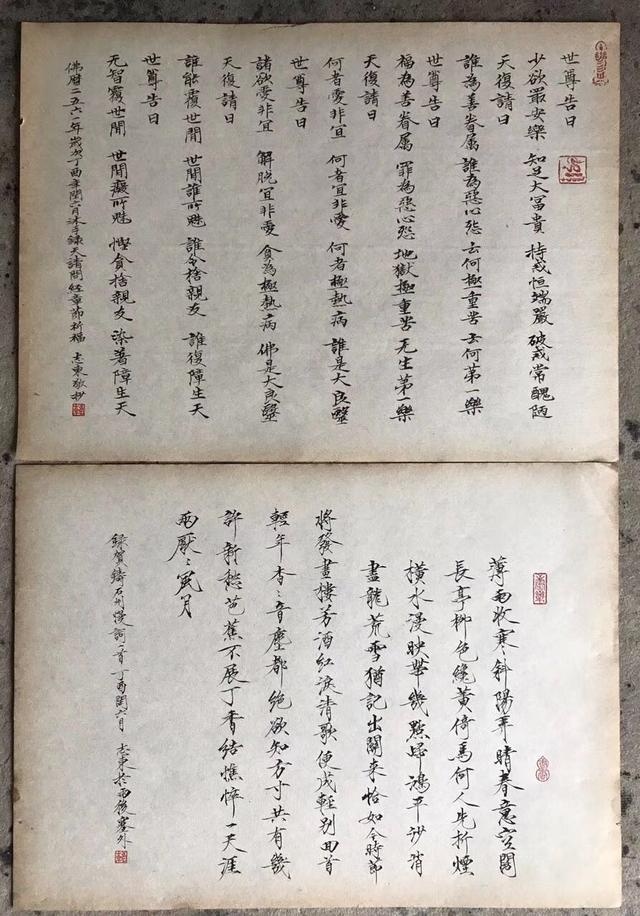 世尊告曰
少欲最安樂 知足大富貴 持戒恒端嚴 破戒常醜陋
天復請曰
誰為善眷屬 誰為惡心怨 云何極重苦 云何第一樂
世尊告曰
福為善眷屬 罪為惡心怨 地獄極重苦 无生第一樂
天復請曰
何者愛非宜 何者宜非愛 何者極熱病 誰是大良醫
世尊告曰
諸欲愛非宜 解脫宜非愛 貪為極熱病 佛是大良醫
天復請曰
誰能覆世間 世間誰所魅 誰令捨親友 誰復障生天
世尊告曰
无智覆世間 世間癡所魅 慳貪捨親友 染著障生天
佛曆二五六一年歲次丁酉年閏六月沐手錄天請問經章節祈福 志東敬抄
薄雨收寒斜陽弄晴春意空闊
長亭柳色纔黃倚馬何人先折煙
橫水漫映帶幾點歸鴻平沙消
盡龍荒雪猶記出關來恰如今時節
將發畫樓芳酒紅淚清歌便成輕別回首
輕年杳〻音塵都絕欲知方寸共有幾
許新愁芭蕉不展丁香結憔悴一天涯
兩厭〻風月
錄賀鑄石州慢詞一首丁酉閏六月 志東於雨後塞外